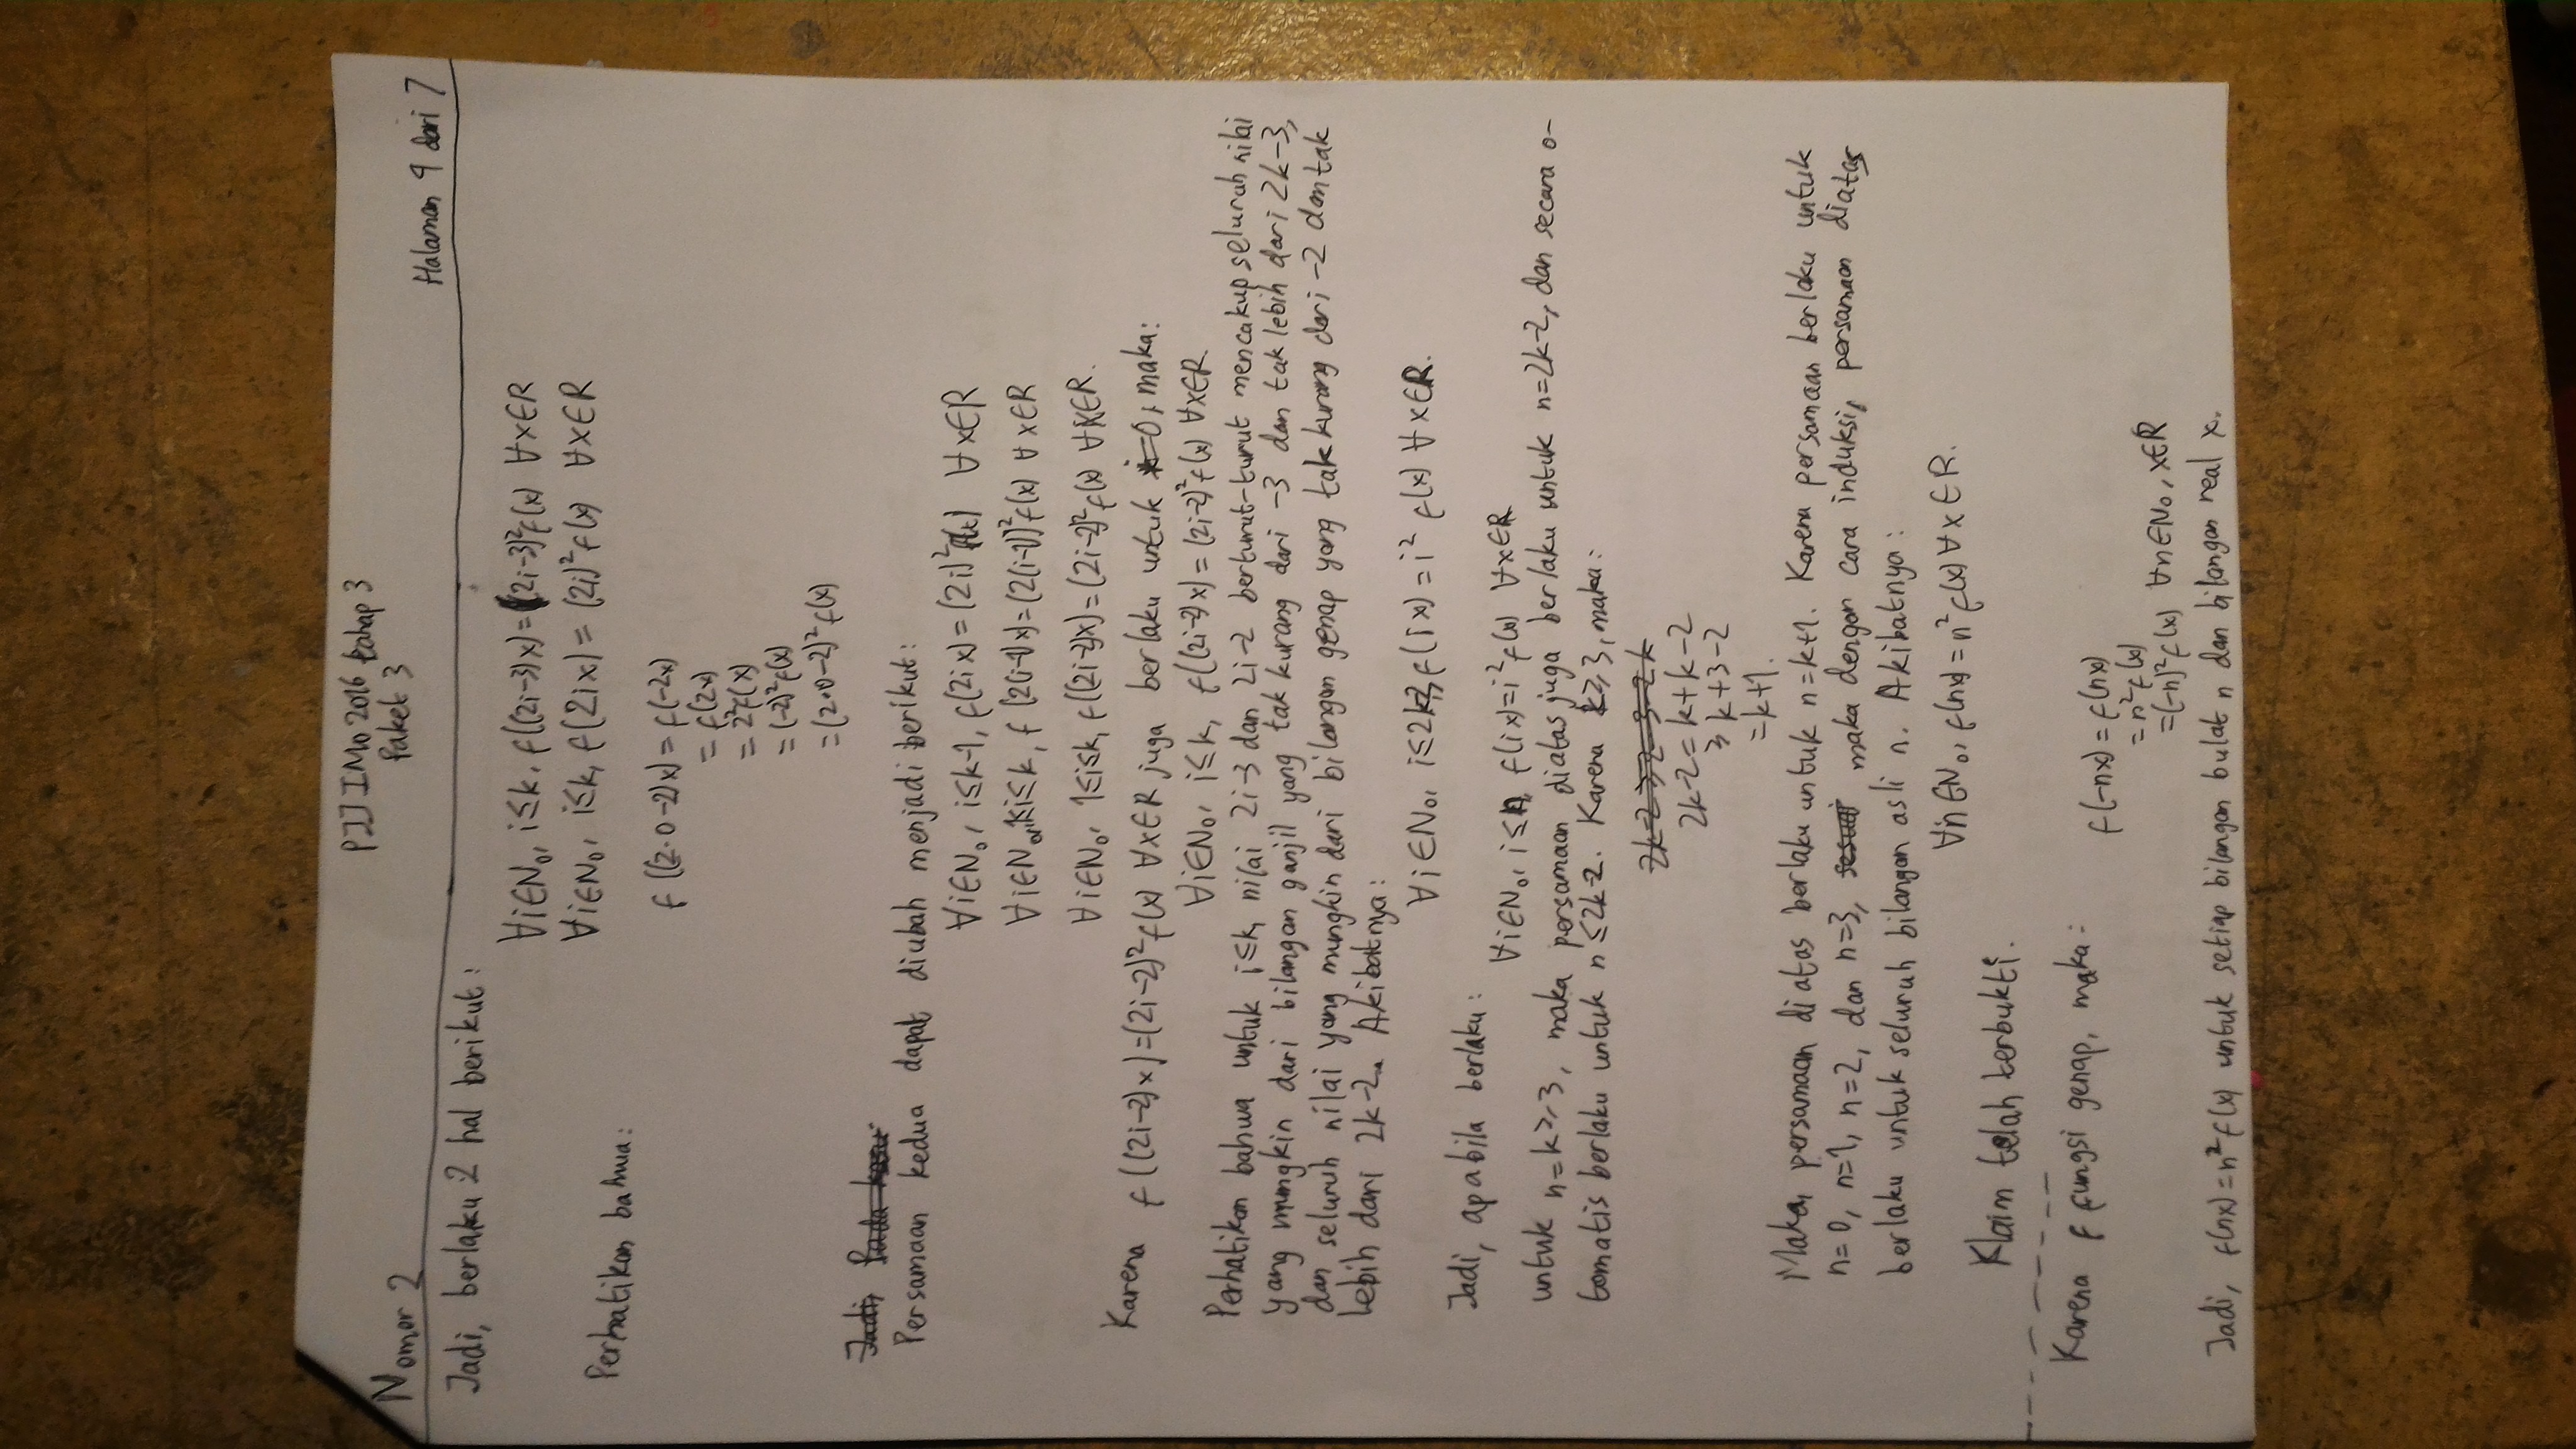 PJJ IMO 2016 tahap 3
Paket 3
Nomor 2
Halaman 4 dari 7
Jadi, berlaku 2 hal berikut:
∀i∈N₀, i≤k, f((2i-3)x)=(2i-3)²f(x) ∀x∈R
∀i∈N₀, i≤k, f(2ix)=(2i)²f(x) ∀x∈R
Perhatikan bahwa:
f((2·0-2)x)=f(-2x)
=f(2x)
=2²f(x)
=(-2)²f(x)
=(2·0-2)²f(x)
Persamaan kedua dapat diubah menjadi berikut:
∀i∈N₀, i≤k-1, f(2ix)=(2i)²f(x) ∀x∈R
∀i∈N₀, 1≤i≤k, f(2(i-1)x)=(2(i-1))²f(x) ∀x∈R
∀i∈N₀, 1≤i≤k, f((2i-2)x)=(2i-2)²f(x) ∀x∈R.
Karena f((2i-2)x)=(2i-2)²f(x) ∀x∈R juga berlaku untuk i=0, maka:
∀i∈N₀, i≤k, f((2i-2)x)=(2i-2)²f(x) ∀x∈R.
Perhatikan bahwa untuk i≤k, nilai 2i-3 dan 2i-2 berturut-turut mencakup seluruh nilai
yang mungkin dari bilangan ganjil yang tak kurang dari -3 dan tak lebih dari 2k-3,
dan seluruh nilai yang mungkin dari bilangan genap yang tak kurang dari -2 dan tak
lebih dari 2k-2. Akibatnya:
∀i∈N₀, i≤2k-2, f(ix)=i² f(x) ∀x∈R.
Jadi, apabila berlaku:
∀i∈N₀, i≤n, f(ix)=i²f(x) ∀x∈R
untuk n=k≥3, maka persamaan diatas juga berlaku untuk n=2k-2, dan secara o-
tomatis berlaku untuk n≤2k-2. Karena k≥3, maka:
2k-2=k+k-2
≥k+3-2
=k+1.
Maka, persamaan diatas berlaku untuk n=k+1. Karena persamaan berlaku untuk
n=0, n=1, n=2, dan n=3, maka dengan cara induksi, persamaan diatas
berlaku untuk seluruh bilangan asli n. Akibatnya:
∀n∈N₀, f(nx)=n²f(x) ∀x∈R.
Klaim telah terbukti.
Karena f fungsi genap, maka:
f(-nx)=f(nx)
=n²f(x)
=(-n)²f(x) ∀n∈N₀, x∈R
Jadi, f(nx)=n²f(x) untuk setiap bilangan bulat n dan bilangan real x.